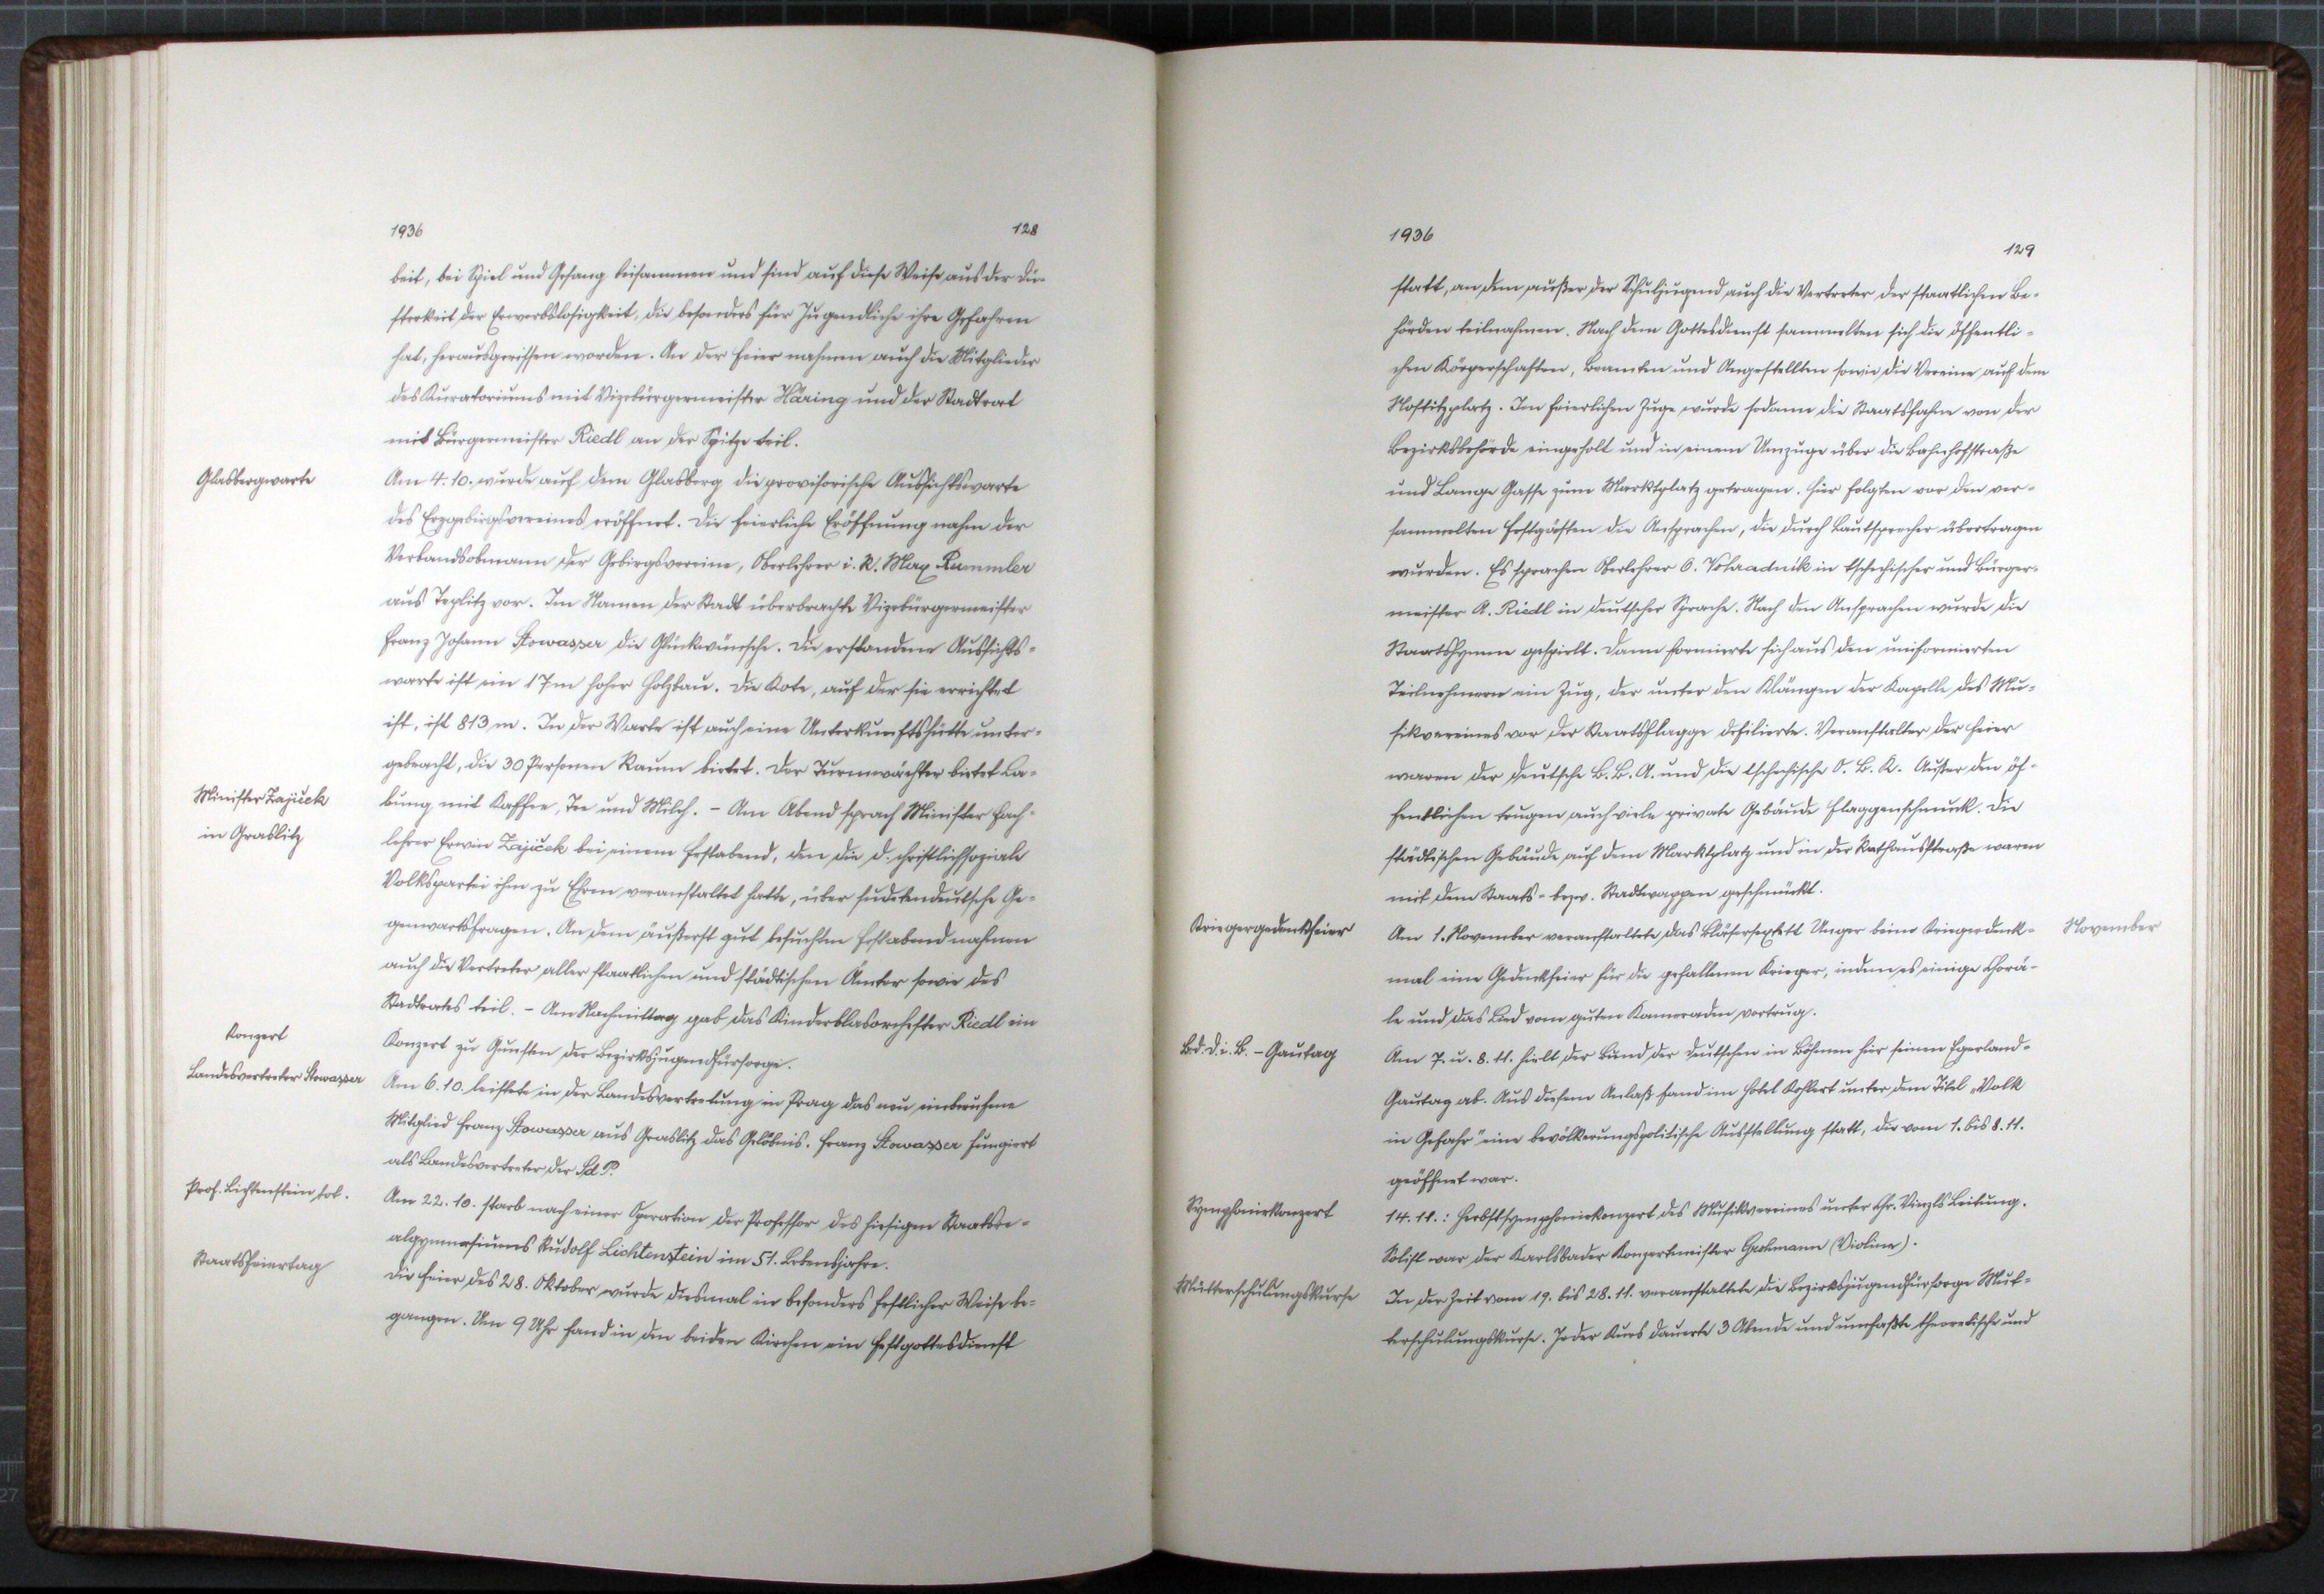 1936
128
beit, bei Spiel und Gesang beisammen und sind auf diese Weise aus der Dü-
sterkeit der Erwerbslosigkeit, die besonders für Jugendliche ihre Gefahren
hat, herausgerissen worden. An der Feier nahmen auch die Mitglieder
des Kuratoriums mit Vizebürgermeister Häring und der Stadtrat
mit Bürgermeister Riedl an der Spitze teil.
Glasbergwarte
Am 4. 10. wurde auf dem Glasberg die provisorische Aussichtswarte
des Erzgebirgsvereines eröffnet. Die feierliche Eröffnung nahm der
Verbandsobmann der Gebirgsvereine, Oberlehrer i. R. Max Rummler
aus Teplitz vor. Im Namen der Stadt überbrachte Vizebürgermeister
Franz Johann Stowasser die Glückwünsche. Die erstandene Aussichts-
warte ist ein 17 m hoher Holzbau. Die Kote, auf der sie errichtet
ist, ist 813 m. In der Warte ist auch eine Unterkunftshütte unter-
gebracht, die 30 Personen Raum bietet. Der Turmwächter bietet La-
Minister Zajiček
in Graslitz
bung mit Kaffee, Tee und Milch. - Am Abend sprach Minister Fach-
lehrer Erwin Zajiček bei einem Festabend, den die d. christlichsoziale
Volkspartei ihm zu Ehren veranstaltet hatte, über sudetendeutsche Ge-
genwartsfragen. An dem äußerst gut besuchten Festabend nahmen
auch die Vertreter aller staatlichen und städtischen Ämter sowie des
Stadtrates teil. - Am Nachmittag gab das Kinderblasorchester Riedl ein
Konzert
Konzert zu Gunsten der Bezirksjugendfürsorge.
Landesvertreter Stowasser
Am 6. 10. leistete in der Landesvertretung in Prag das neu einberufene
Mitglied Franz Stowasser aus Graslitz das Gelöbnis. Franz Stowasser fungiert
als Landesvertreter der SdP.
Prof. Lichtenstein tot.
Am 22. 10. starb nach einer Operation der Professor des hiesigen Staatsre-
algymnasiums Rudolf Lichtenstein im 51. Lebensjahre.
Staatsfeiertag
Die Feier des 28. Oktober wurde diesmal in besonders festlicher Weise be-
gangen. Um 9 Uhr fand in den beiden Kirchen ein Festgottesdienst
1936
129
statt, an dem außer der Schuljugend auch die Vertreter der staatlichen Be-
hörden teilnahmen. Nach dem Gottesdienst sammelten sich die öffentli-
chen Körperschaften, Beamten und Angestellten sowie die Vereine auf dem
Nostitzplatz. Im feierlichen Zuge wurde sodann die Staatsfahne von der
Bezirksbehörde eingeholt und in einem Umzuge über die Bahnhofstraße
und Lange Gasse zum Marktplatz getragen. Hier folgten vor den ver-
sammelten Festgästen die Ansprachen, die durch Lautsprecher übertragen
wurden. Es sprachen Oberlehrer O. Vohradník in tschechischer und Bürger-
meister A. Riedl in deutscher Sprache. Nach den Ansprachen wurde die
Staatshymne gespielt. Dann formierte sich aus den uniformierten
Teilnehmern ein Zug, der unter den Klängen der Kapelle des Mu-
sikvereines vor der Staatsflagge defilierte. Veranstalter der Feier
waren der deutsche B. B. A. und die tschechische O. B. K. Außer den öf-
fentlichen trugen auch viele private Gebäude Flaggenschmuck. Die
städtischen Gebäude auf dem Marktplatz und in der Rathausstraße waren
mit dem Staats- bezw. Stadtwappen geschmückt.
Kriegergedenkfeier
November
Am 1. November veranstaltete das Bläsersextett Unger beim Kriegerdenk-
mal eine Gedenkfeier für die gefallenen Krieger, indem es einige Chorä-
le und das Lied vom guten Kameraden vortrug.
Bd. D. i. B. - Gautag
Am 7. u. 8. 11. hielt der Bund der Deutschen in Böhmen hier seinen Egerland-
Gautag ab. Aus diesem Anlaß fand im Hotel Kohlert unter dem Titel „Volk
in Gefahr" eine bevölkerungspolitische Ausstellung statt, die vom 1. bis 8. 11.
geöffnet war.
Symphoniekonzert
14. 11.: Herbstsymphoniekonzert des Musikvereines unter Chr. Vinzls Leitung.
Solist war der Karlsbader Konzertmeister Grohmann (Violine).
Mütterschulungskurse
In der Zeit vom 19. bis 28. 11. veranstaltete die Bezirksjugendfürsorge Müt-
terschulungskurse. Jeder Kurs dauerte 3 Abende und umfaßte theoretische und